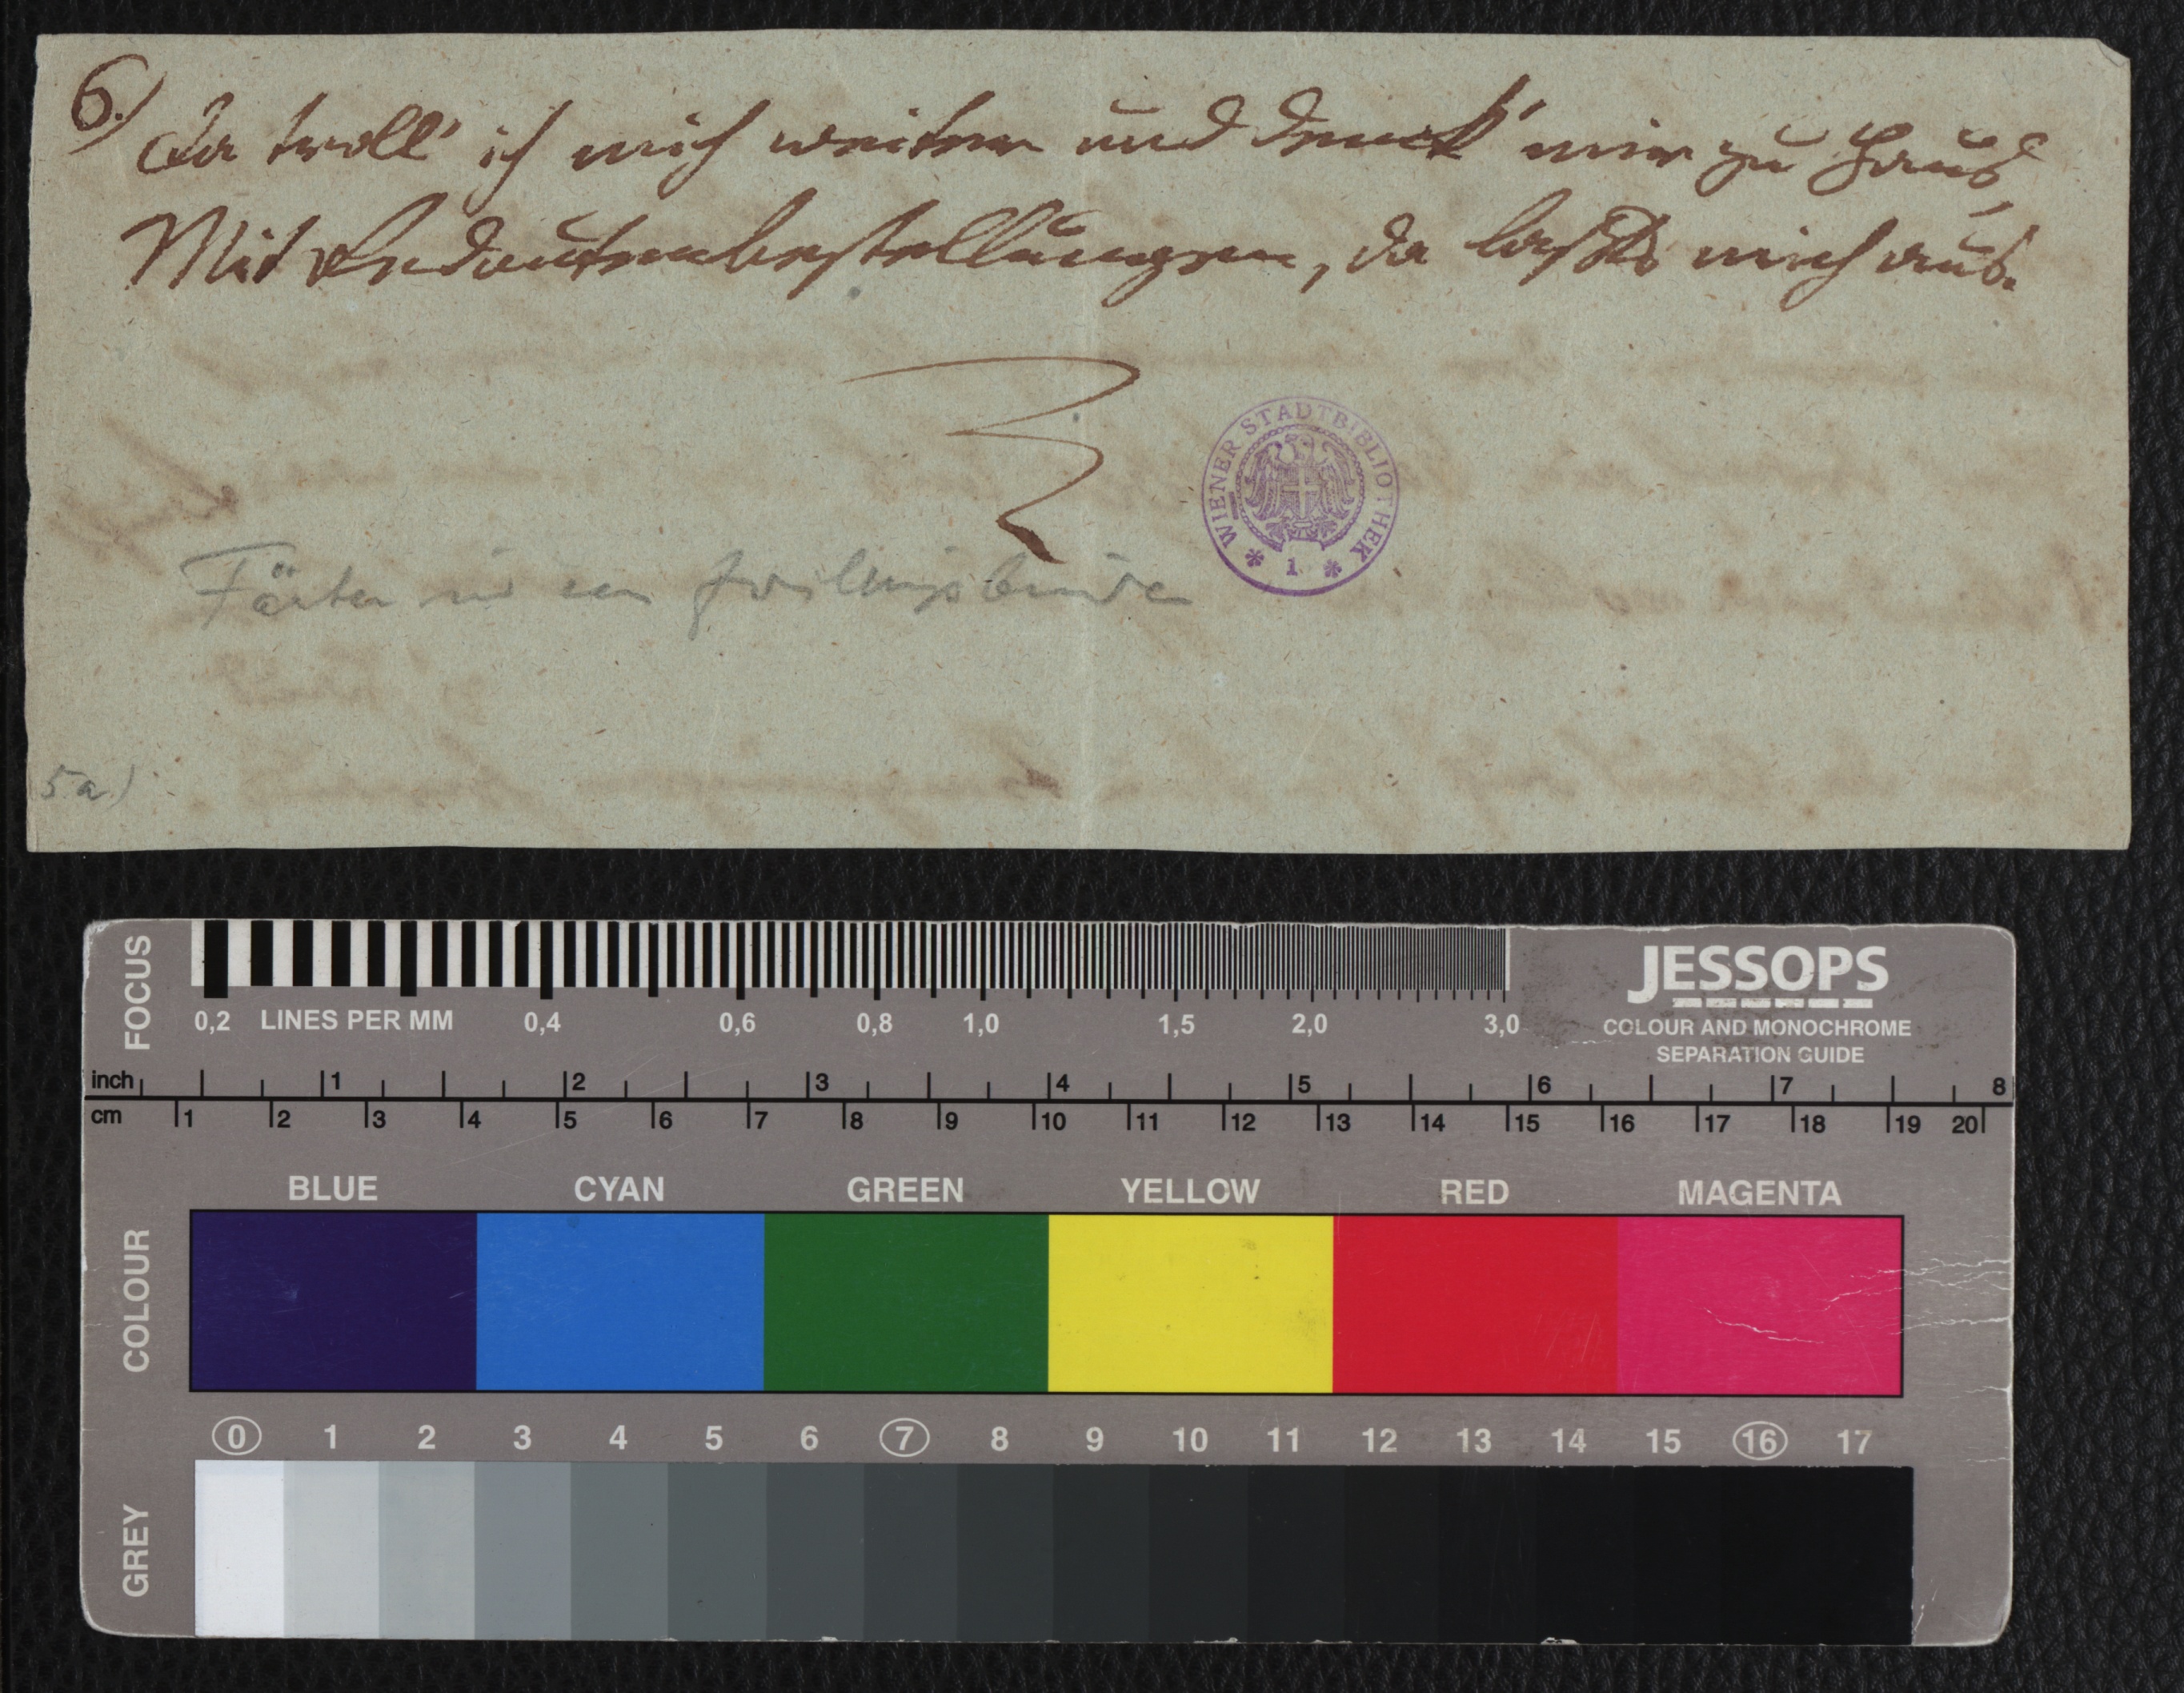 6.)
Da troll' ich mich weiter und denck' mir zu Haus
Mit Redoutenbestellungen, da laßts mich aus.
WIENER STADTBIBLIOTHEK
* 1 *
Färber und sein Zwillingsbruder
5.a.)
FOCUS
JESSOPS
COLOUR AND MONOCHROME
SEPARATION GUIDE
0,2 LINES PER MM 0,4 0,6 0,8 1,0 1,5 2,0 3,0
inch 1 2 3 4 5 6 7 8
cm 1 2 3 4 5 6 7 8 9 10 11 12 13 14 15 16 17 18 19 20
COLOUR
BLUE CYAN GREEN YELLOW RED MAGENTA
0 1 2 3 4 5 6 7 8 9 10 11 12 13 14 15 16 17
GREY